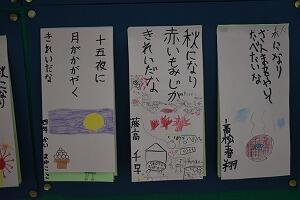 秋になり
さんまをやいて
たべたいな
高松春翔
秋になり
赤いもみじが
きれいだな
十五夜に
月がかがやく
きれいだな
秋になり